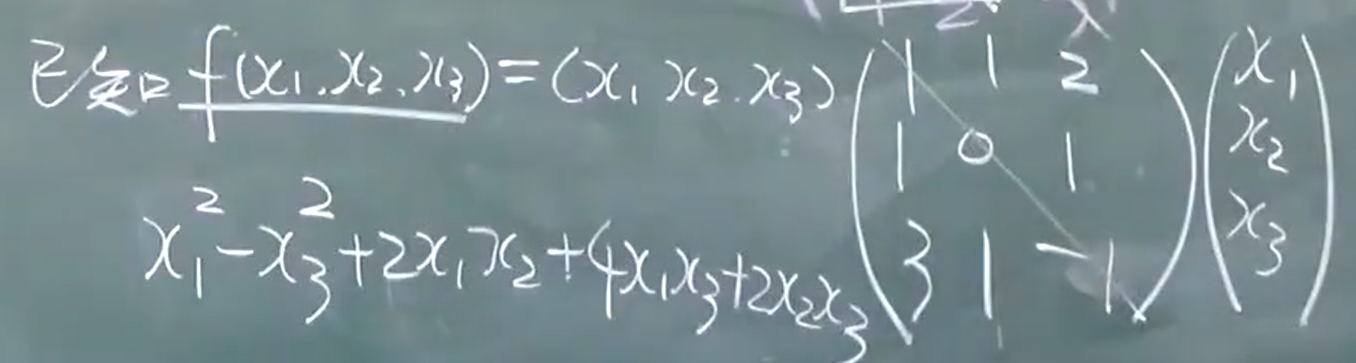 已知 f(x₁,x₂,x₃)=(x₁ x₂.x₃) (1 1 2; 1 0 1; 3 1 -1) (x₁; x₂; x₃)
x₁²-x₃²+2x₁x₂+4x₁x₃+2x₂x₃